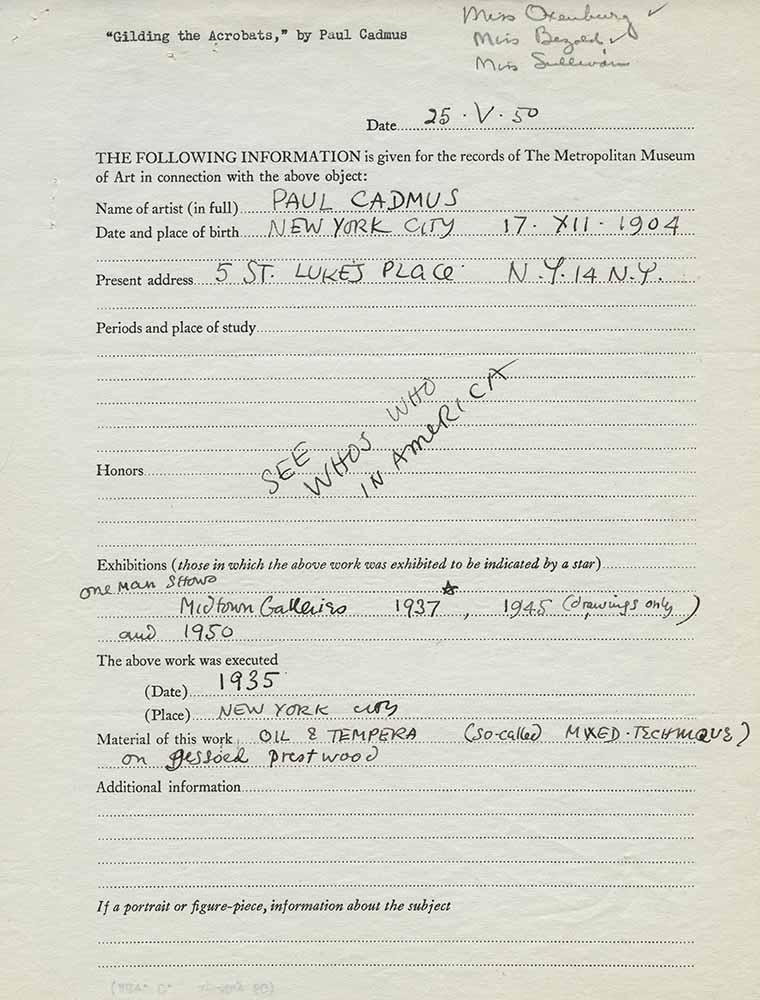 "Gilding the Acrobats," by Paul Cadmus
Miss Oxenburg ✓
Miss Bezold ✓
Miss Sullivan
Date 25 · V · 50
THE FOLLOWING INFORMATION is given for the records of The Metropolitan Museum
of Art in connection with the above object:
Name of artist (in full) PAUL CADMUS
Date and place of birth NEW YORK CITY 17 · XII · 1904
Present address 5 ST. LUKE'S PLACE N.Y. 14 N.Y.
Periods and place of study
SEE
WHOS WHO
IN AMERICA
Honors
Exhibitions (those in which the above work was exhibited to be indicated by a star)
one man shows
Midtown Galleries 1937☆, 1945 (drawings only)
and 1950
The above work was executed
(Date) 1935
(Place) NEW YORK CITY
Material of this work OIL & TEMPERA (so-called MIXED-TECHNIQUE)
on gessoed prestwood
Additional information
If a portrait or figure-piece, information about the subject